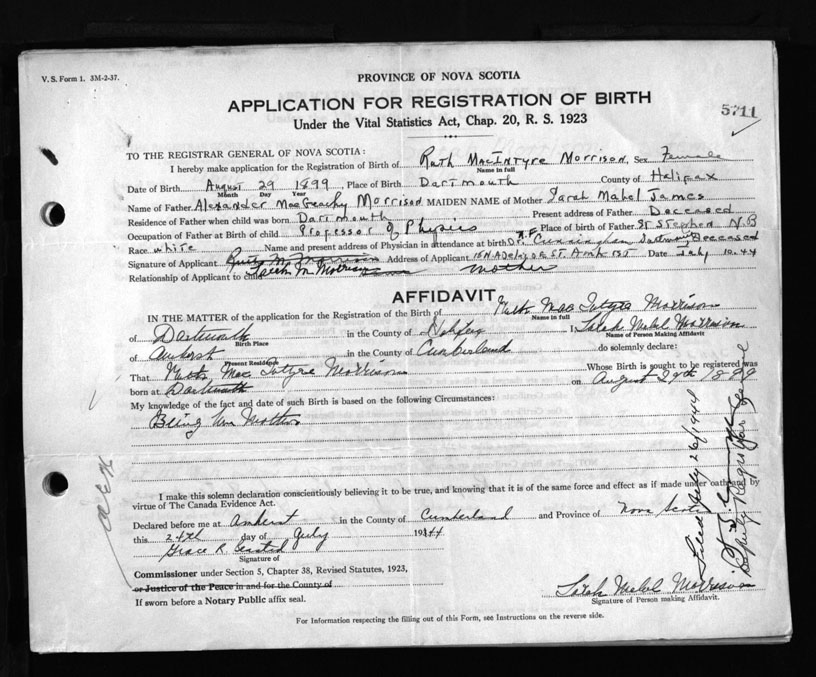 V. S. Form 1. 3M-2-37.
PROVINCE OF NOVA SCOTIA
APPLICATION FOR REGISTRATION OF BIRTH
5711
Under the Vital Statistics Act, Chap. 20, R. S. 1923
TO THE REGISTRAR GENERAL OF NOVA SCOTIA:
I hereby make application for the Registration of Birth of Ruth MacIntyre Morrison, Sex Female
Name in full
Date of Birth August 29 1899, Place of Birth Dartmouth County of Halifax
Month Day Year
Name of Father Alexander MacGeachy Morrison MAIDEN NAME of Mother Sarah Mabel James
Residence of Father when child was born Dartmouth Present address of Father Deceased
Occupation of Father at Birth of child Professor of Physics Place of birth of Father St Stephen N.B
Race white Name and present address of Physician in attendance at birth Dr. Cunningham Dartmouth Deceased
Signature of Applicant Ruth M. Morrison Address of Applicant St. Date July 1944
Sarah M. Morrison mother
Relationship of Applicant to child
AFFIDAVIT
IN THE MATTER of the application for the Registration of the Birth of Ruth MacIntyre Morrison
Name in full
of Dartmouth in the County of Halifax I Sarah Mabel Morrison
Birth Place Name of Person Making Affidavit
of Amherst in the County of Cumberland do solemnly declare:
Present Residence
That Ruth MacIntyre Morrison Whose Birth is sought to be registered was
born at Dartmouth on August 29th 1899
My knowledge of the fact and date of such Birth is based on the following Circumstances:
Being her Mother
I make this solemn declaration conscientiously believing it to be true, and knowing that it is of the same force and effect as if made under oath and by
virtue of The Canada Evidence Act.
Declared before me at Amherst in the County of Cumberland and Province of Nova Scotia
this 24th day of July 1944
Grace R.
Signature of
Commissioner under Section 5, Chapter 38, Revised Statutes, 1923,
or Justice of the Peace in and for the County of
If sworn before a Notary Public affix seal.
Sarah Mabel Morrison
Signature of Person making Affidavit.
For Information respecting the filling out of this Form, see Instructions on the reverse side.
Filed July 26/1944
Deputy Registrar General